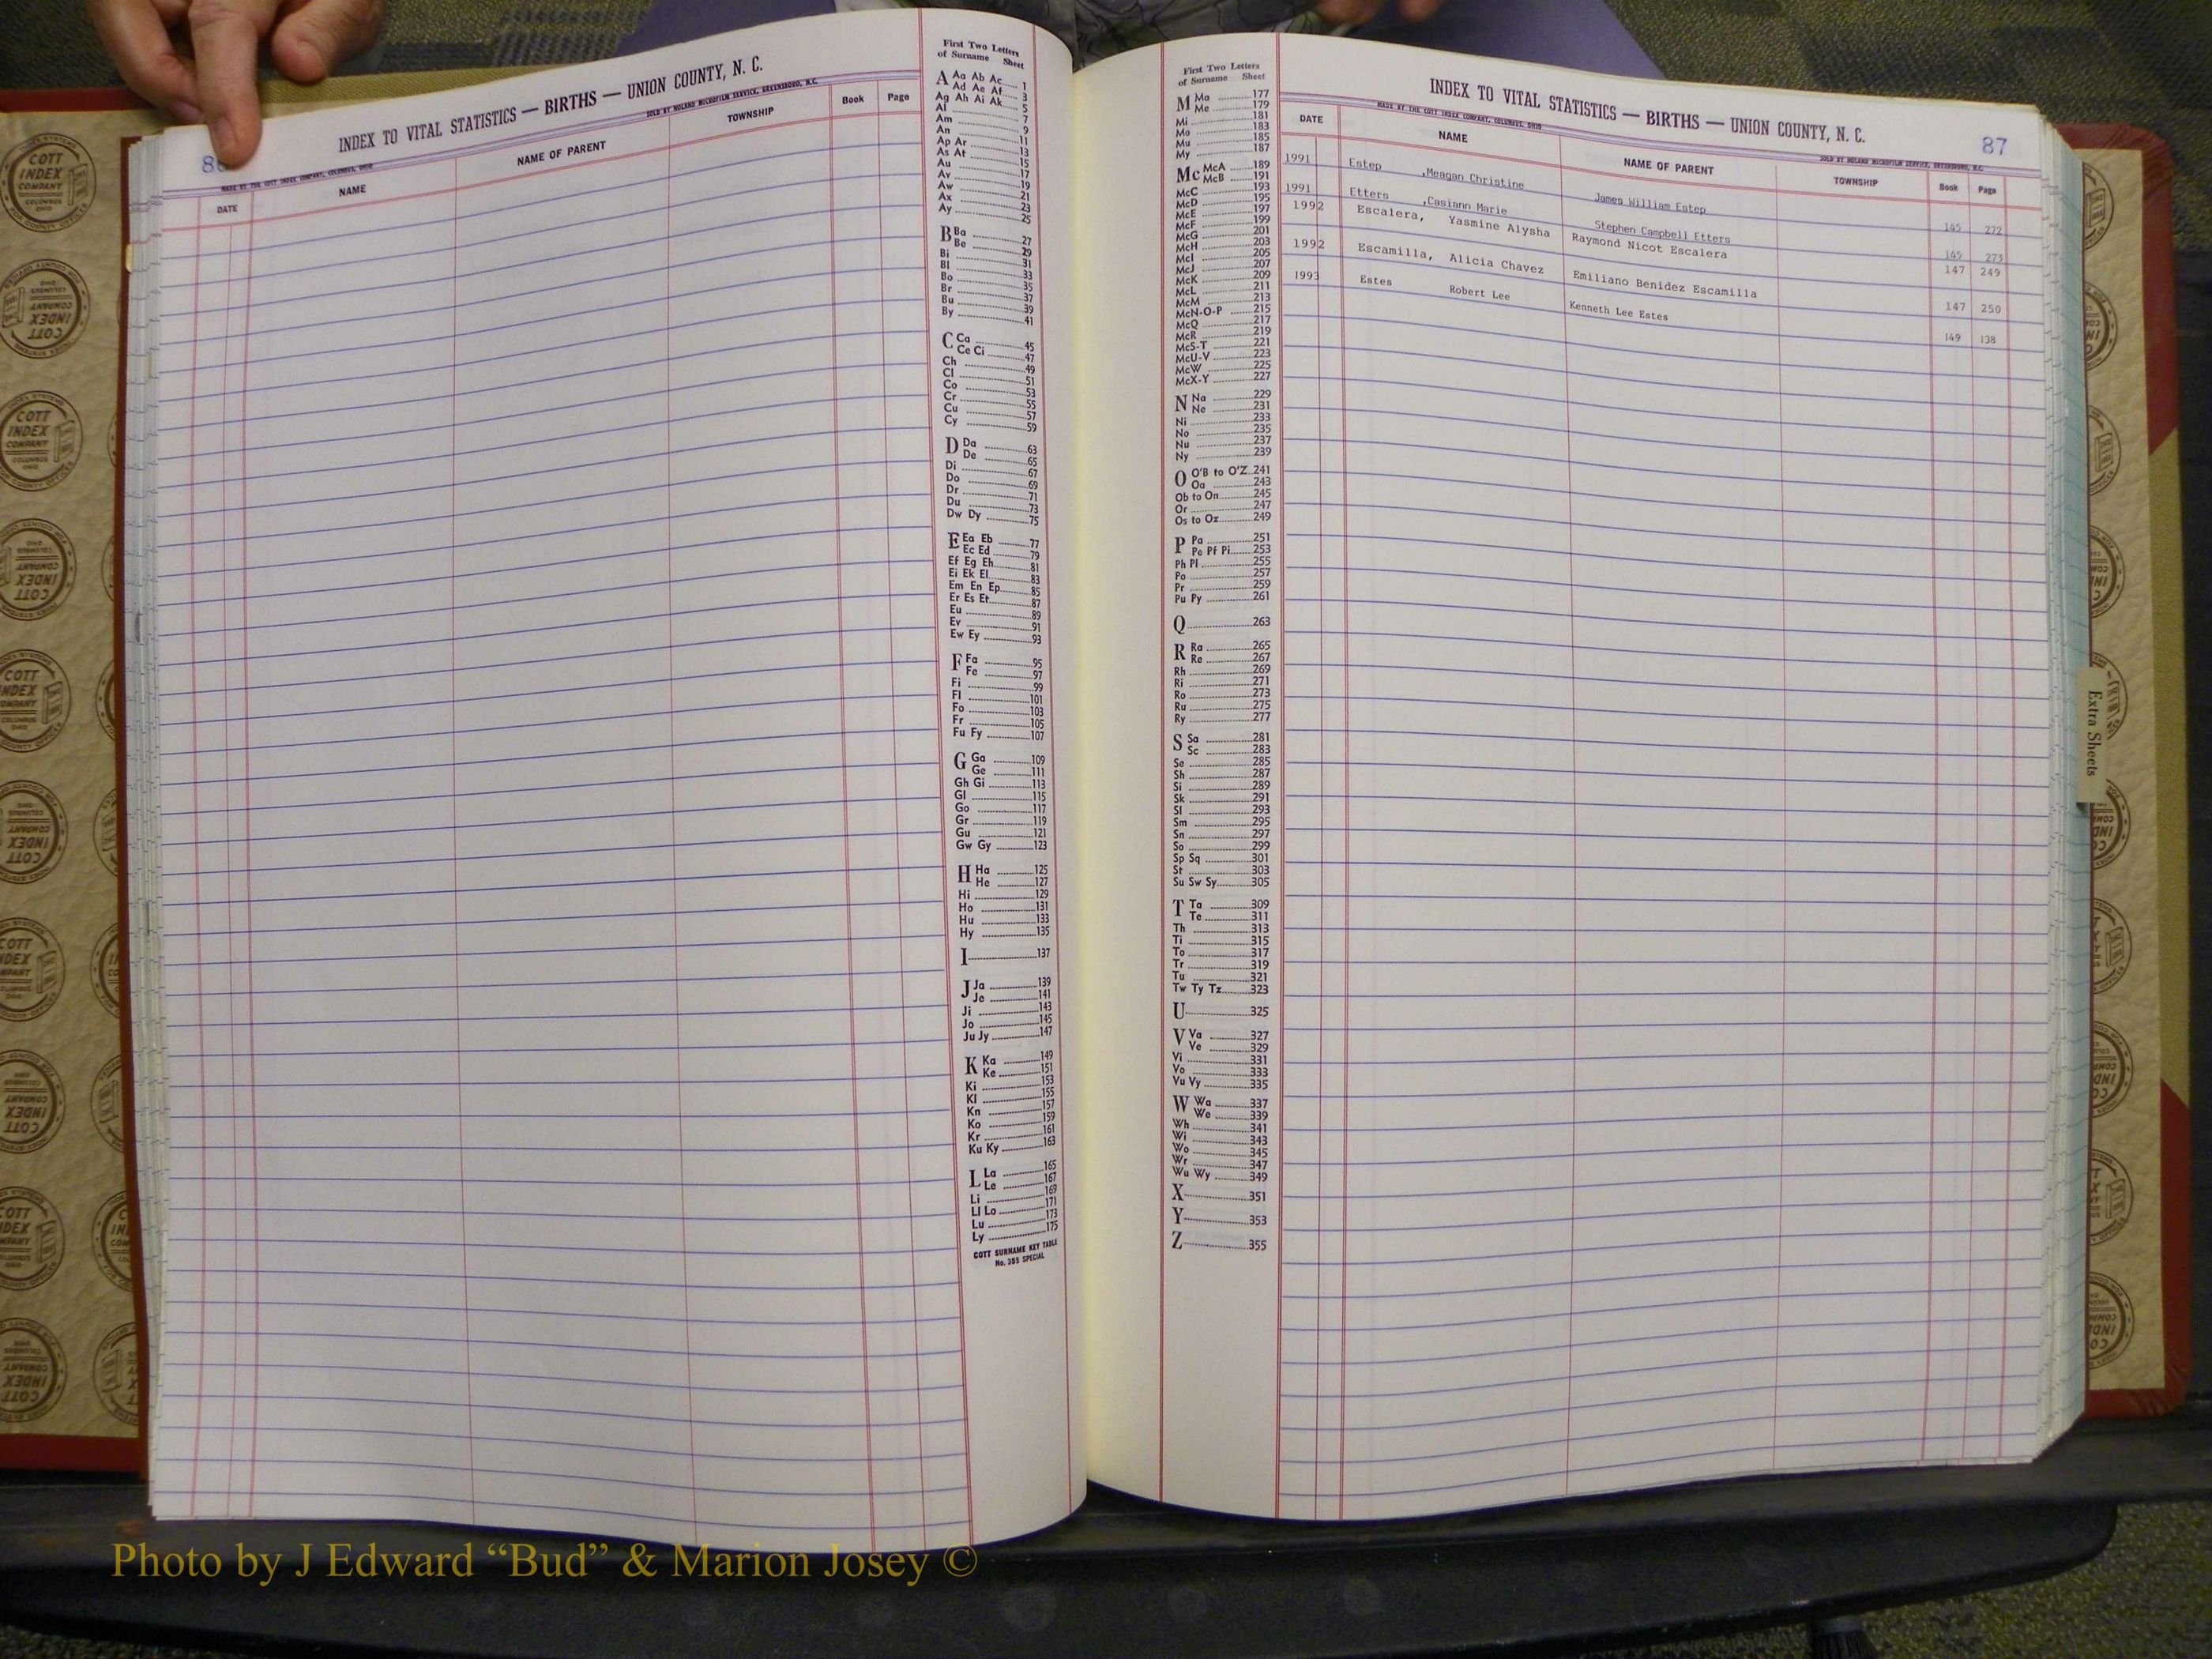 INDEX TO VITAL STATISTICS — BIRTHS — UNION COUNTY, N. C.
MADE BY THE COTT INDEX COMPANY, COLUMBUS, OHIO
SOLD BY NOLAND MICROFILM SERVICE, GREENSBORO, N.C.
DATE NAME NAME OF PARENT TOWNSHIP Book Page
First Two Letters
of Surname Sheet
A Aa Ab Ac 1
Ad Ae Af 3
Ag Ah Ai Ak 5
Al 7
Am 9
An 11
Ap Ar 13
As At 15
Au 17
Av 19
Aw 21
Ax 23
Ay 25
B Ba 27
Be 29
Bi 31
Bl 33
Bo 35
Br 37
Bu 39
By 41
C Ca 45
Ce Ci 47
Ch 49
Cl 51
Co 53
Cr 55
Cu 57
Cy 59
D Da 63
De 65
Di 67
Do 69
Dr 71
Du 73
Dw Dy 75
E Ea Eb 77
Ec Ed 79
Ef Eg Eh 81
Ei Ek El 83
Em En Ep 85
Er Es Et 87
Eu 89
Ev 91
Ew Ey 93
F Fa 95
Fe 97
Fi 99
Fl 101
Fo 103
Fr 105
Fu Fy 107
G Ga 109
Ge 111
Gh Gi 113
Gl 115
Go 117
Gr 119
Gu 121
Gw Gy 123
H Ha 125
He 127
Hi 129
Ho 131
Hu 133
Hy 135
I 137
J Ja 139
Je 141
Ji 143
Jo 145
Ju Jy 147
K Ka 149
Ke 151
Ki 153
Kl 155
Kn 157
Ko 159
Kr 161
Ku Ky 163
L La 165
Le 167
Li 169
Ll Lo 171
Lu 173
Ly 175
COTT SURNAME KEY TABLE
No. 355 SPECIAL
First Two Letters
of Surname Sheet
M Ma 177
Me 179
Mi 181
Mo 183
Mu 185
My 187
Mc McA 189
McB 191
McC 193
McD 195
McE 197
McF 199
McG 201
McH 203
McI 205
McJ 207
McK 209
McL 211
McM 213
McN-O-P 215
McQ 217
McR 219
McS-T 221
McU-V 223
McW 225
McX-Y 227
N Na 229
Ne 231
Ni 233
No 235
Nu 237
Ny 239
O O'B to O'Z 241
Oa 243
Ob to On 245
Or 247
Os to Oz 249
P Pa 251
Pe Pf Pi 253
Ph Pl 255
Po 257
Pr 259
Pu Py 261
Q 263
R Ra 265
Re 267
Rh 269
Ri 271
Ro 273
Ru 275
Ry 277
S Sa 281
Sc 283
Se 285
Sh 287
Si 289
Sk 291
Sl 293
Sm 295
Sn 297
So 299
Sp Sq 301
St 303
Su Sw Sy 305
T Ta 309
Te 311
Th 313
Ti 315
To 317
Tr 319
Tu 321
Tw Ty Tz 323
U 325
V Va 327
Ve 329
Vi 331
Vo 333
Vu Vy 335
W Wa 337
We 339
Wh 341
Wi 343
Wo 345
Wr 347
Wu Wy 349
X 351
Y 353
Z 355
INDEX TO VITAL STATISTICS — BIRTHS — UNION COUNTY, N. C.
87
MADE BY THE COTT INDEX COMPANY, COLUMBUS, OHIO
SOLD BY NOLAND MICROFILM SERVICE, GREENSBORO, N.C.
DATE NAME NAME OF PARENT TOWNSHIP Book Page
1991 Estep ,Meagan Christine James William Estep 145 272
1991 Etters ,Casiann Marie Stephen Campbell Etters 145 273
1992 Escalera, Yasmine Alysha Raymond Nicot Escalera 147 249
1992 Escamilla, Alicia Chavez Emiliano Benidez Escamilla 147 250
1993 Estes Robert Lee Kenneth Lee Estes 149 138
Extra Sheets
COTT
INDEX
COMPANY
COLUMBUS
OHIO
Photo by J Edward “Bud” & Marion Josey ©